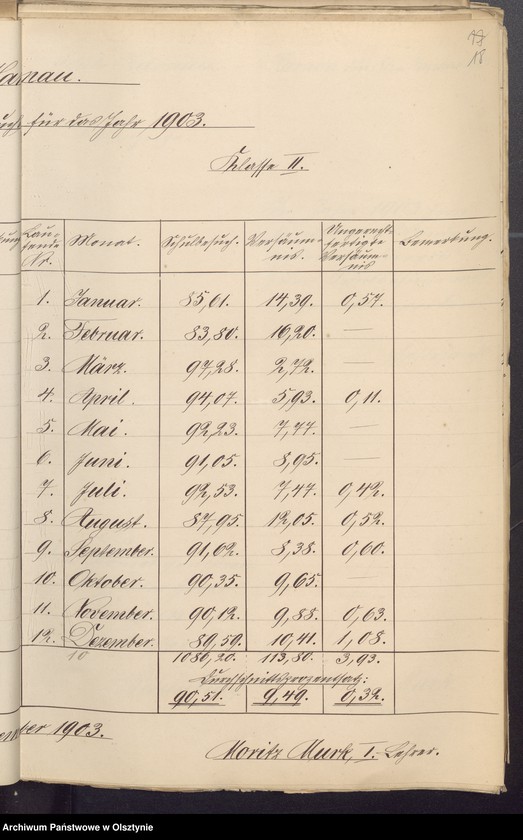 17
18
Hanau.
für das Jahr 1903.
Klasse II.
Laufende Nr. Monat. Schulbesuch. Versäumnis. Ungerechtfertigte Versäumnis Bemerkung.
1. Januar. 85,61. 14,39. 0,57.
2. Februar. 83,80. 16,20. —
3. März. 97,28. 2,72. —
4. April. 94,07. 5,93. 0,11.
5. Mai. 92,23. 7,77. —
6. Juni. 91,05. 8,95. —
7. Juli. 92,53. 7,47. 0,42.
8. August. 87,95. 12,05. 0,52.
9. September. 91,62. 8,38. 0,60.
10. Oktober. 90,35. 9,65. —
11. November. 90,12. 9,88. 0,63.
12. Dezember. 89,59. 10,41. 1,08.
10 1086,20. 113,80. 3,93.
Durchschnittsprozentsatz:
90,51. 9,49. 0,32.
1903.
Moritz Murk, I. Lehrer.
Archiwum Państwowe w Olsztynie